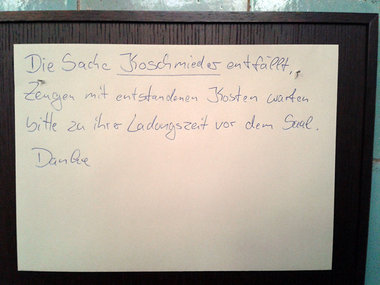 Die Sache Koschmieder entfällt,
Zeugen mit entstandenen Kosten warten
bitte zu ihrer Ladungszeit vor dem Saal.
Danke